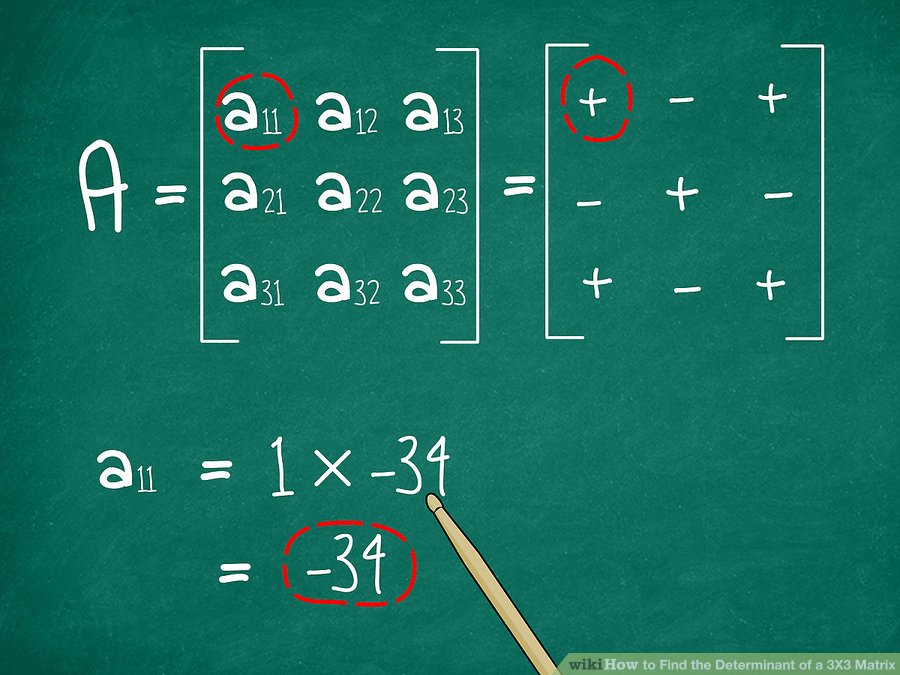 A = [ a11 a12 a13 ] = [ + - + ]
a21 a22 a23 - + -
a31 a32 a33 + - +
a11 = 1 × -34
= -34
wikiHow to Find the Determinant of a 3X3 Matrix